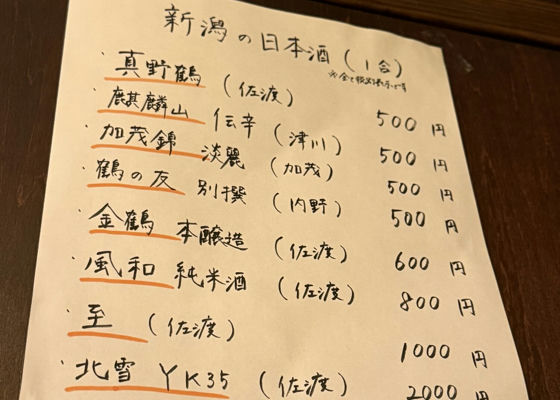 新潟の日本酒(1合)
※全て税込表示です
・真野鶴 (佐渡) 500円
・麒麟山 伝辛 (津川) 500円
・加茂錦 淡麗 (加茂) 500円
・鶴の友 別撰 (内野) 500円
・金鶴 本醸造 (佐渡) 600円
・風和 純米酒 (佐渡) 800円
・至 (佐渡) 1000円
・北雪 YK35 (佐渡) 2000円